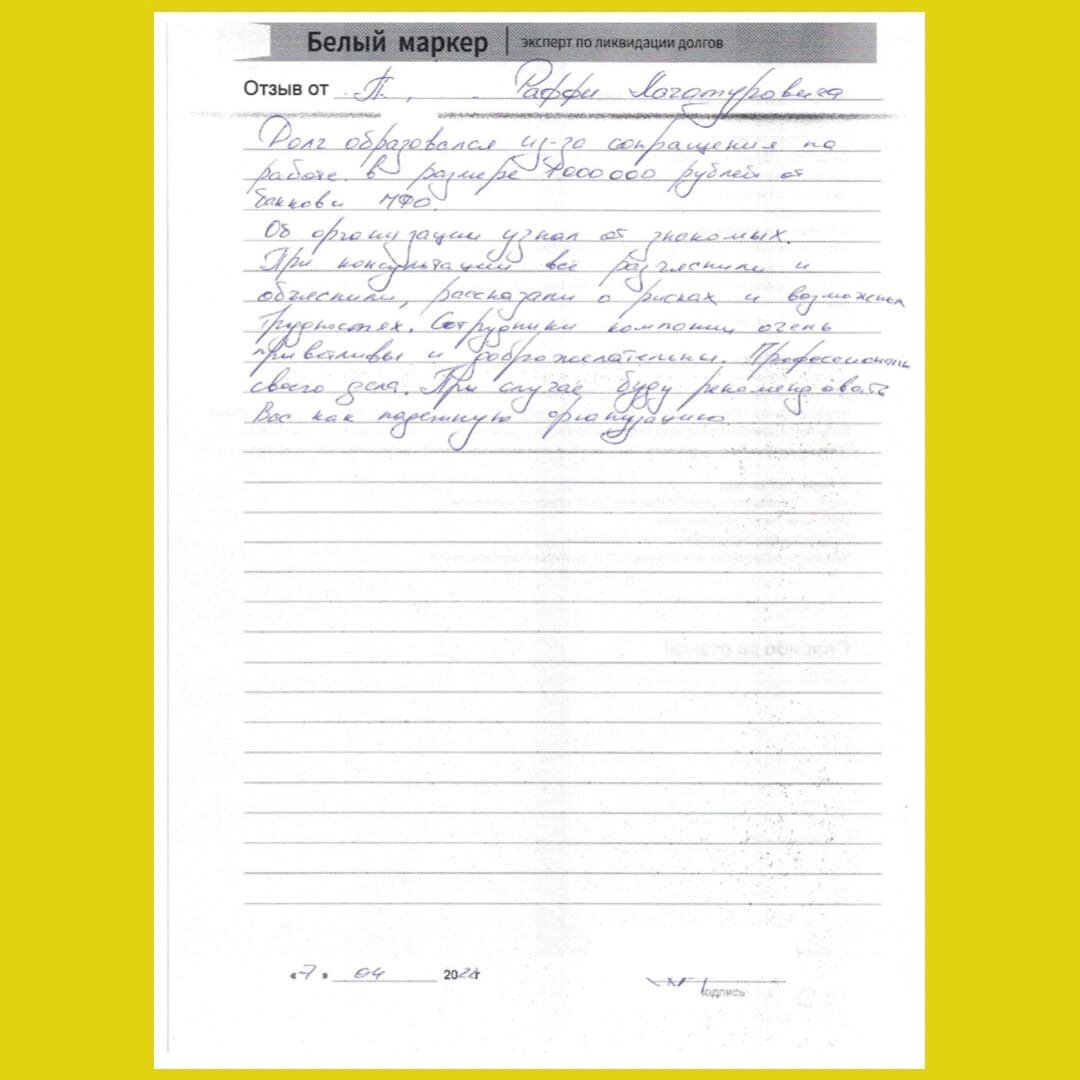 Белый маркер | эксперт по ликвидации долгов
Отзыв от П. Раффи Хачатуровича
Долг образовался из-за сокращения по
работе. в размере 1000000 рублей от
банков и МФО.
Об организации узнал от знакомых.
При консультации всё разъяснили и
объяснили, рассказали о рисках и возможных
трудностях. Сотрудники компании очень
приветливы и доброжелательны. Профессионалы
своего дела. При случае буду рекомендовать
Вас как надежную организацию.
Спасибо за отзыв!
«7» 04 202 г
подпись